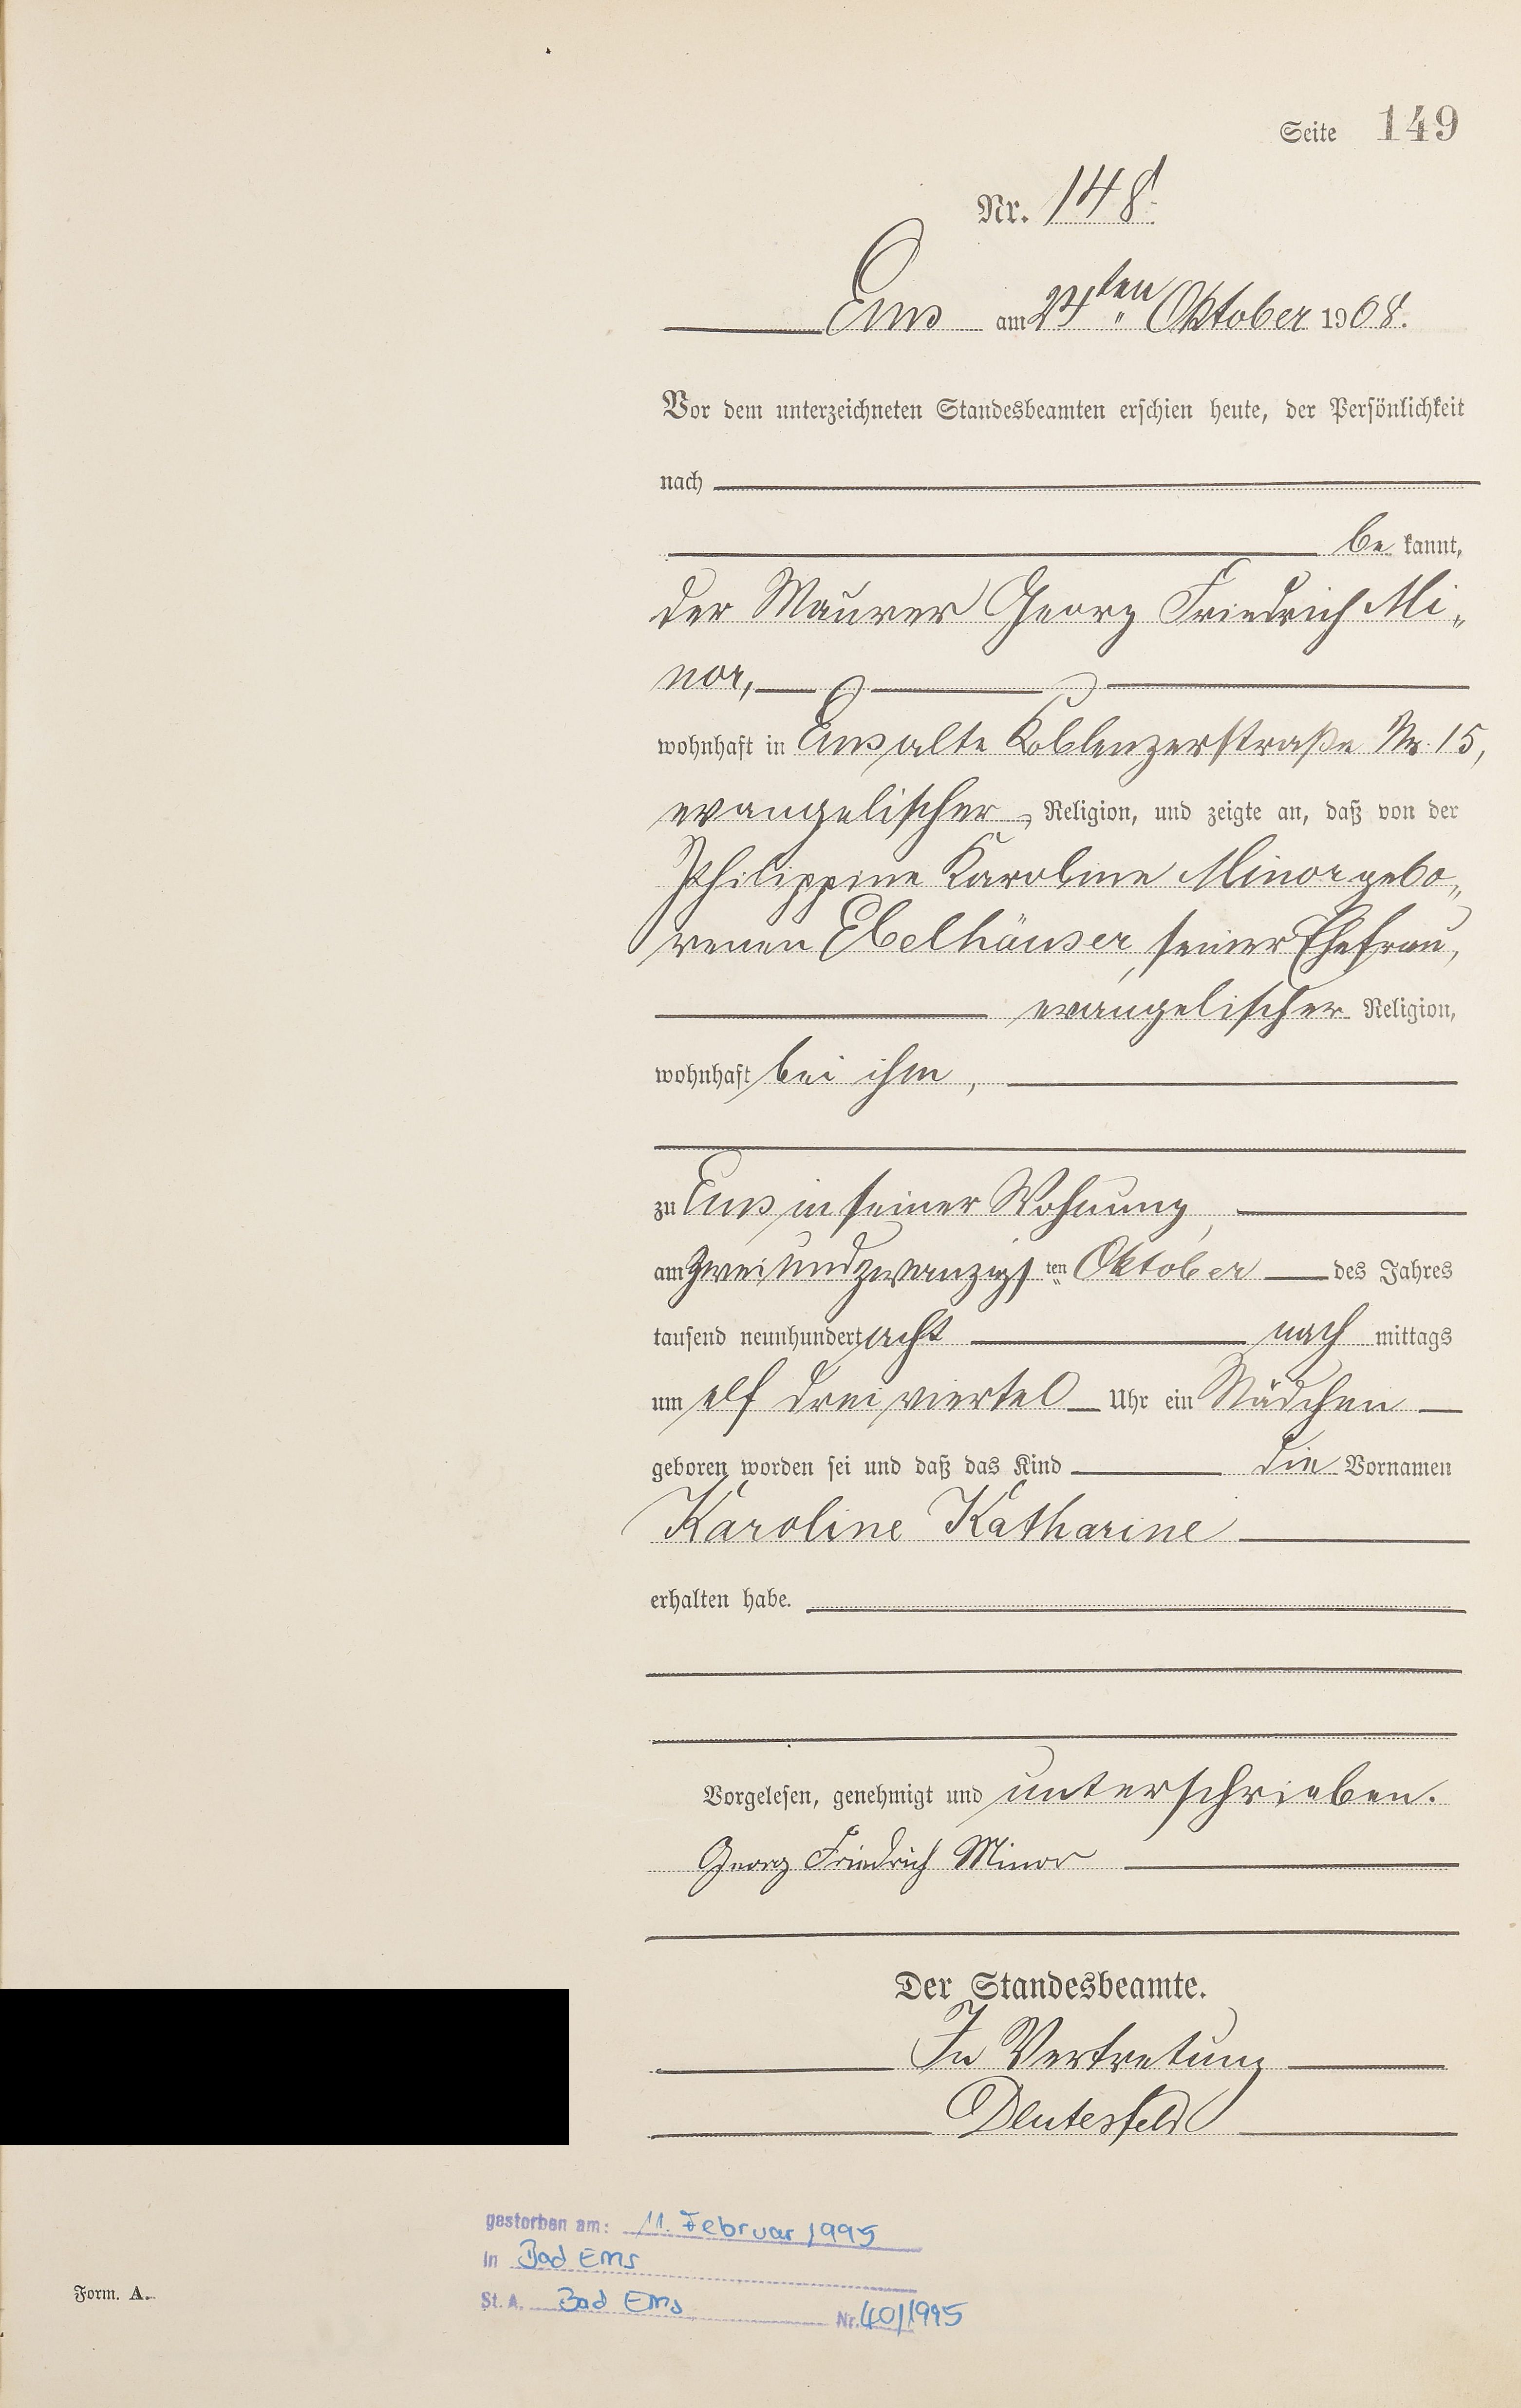 Seite 149
Nr. 148.
Ems am 24ten Oktober 1908.
Vor dem unterzeichneten Standesbeamten erschien heute, der Persönlichkeit
nach
be kannt,
der Maurer Georg Friedrich Mi„
nor,
wohnhaft in Ems alte Koblenzerstraße Nr. 15,
evangelischer Religion, und zeigte an, daß von der
Philippine Karoline Minor gebo„
renen Ebelhäuser, seiner Ehefrau,
evangelischer Religion,
wohnhaft bei ihm,
zu Ems in seiner Wohnung,
am zweiundzwanzigsten Oktober des Jahres
tausend neunhundert acht nach mittags
um elf dreiviertel Uhr ein Mädchen
geboren worden sei und daß das Kind die Vornamen
Karoline Katharine
erhalten habe.
Vorgelesen, genehmigt und unterschrieben.
Georg Friedrich Minor
Der Standesbeamte.
In Vertretung
gestorben am: 11. Februar 1995
in Bad Ems
St. A. Bad Ems Nr. 40/1995
Form. A.